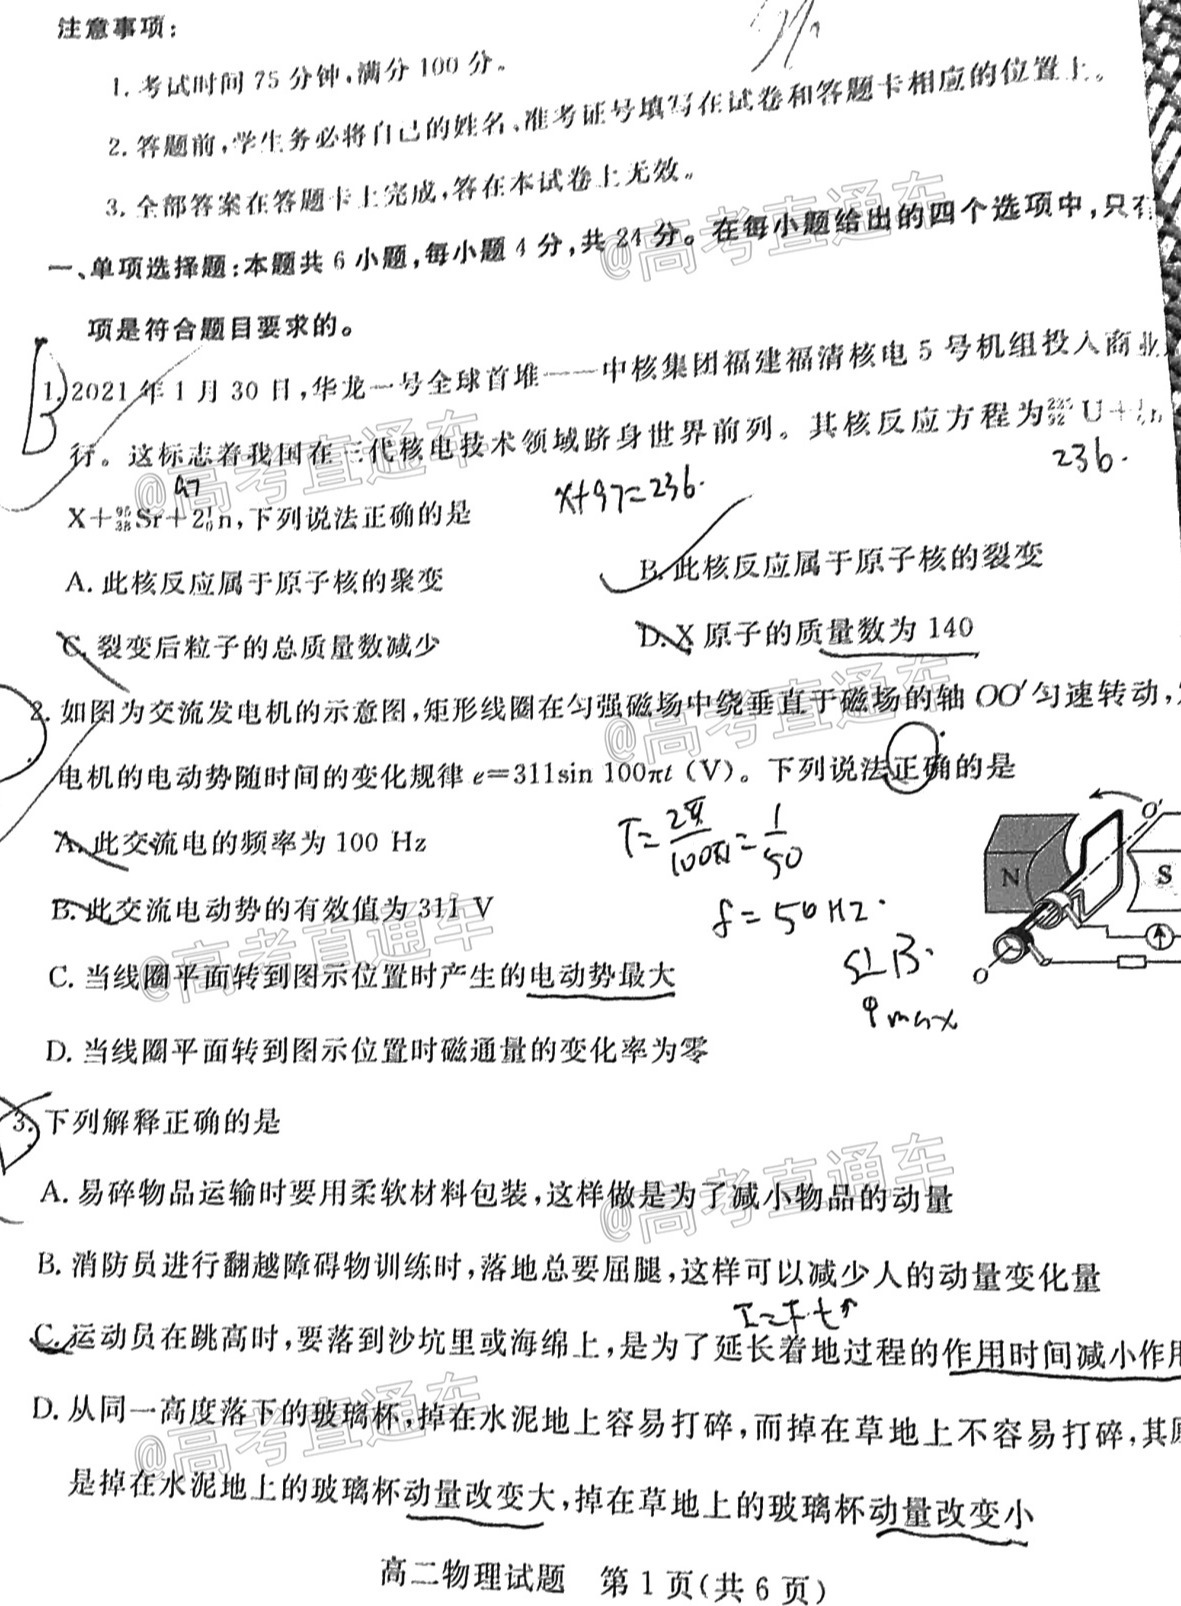 注意事项：
1. 考试时间 75 分钟，满分 100 分。
2. 答题前，学生务必将自己的姓名、准考证号填写在试卷和答题卡相应的位置上。
3. 全部答案在答题卡上完成，答在本试卷上无效。
一、单项选择题：本题共 6 小题，每小题 4 分，共 24 分。在每小题给出的四个选项中，只有
项是符合题目要求的。
B
1. 2021 年 1 月 30 日，华龙一号全球首堆——中核集团福建福清核电 5 号机组投入商业
行。这标志着我国在三代核电技术领域跻身世界前列。其核反应方程为²³⁵₉₂U＋¹₀n
97
x+97=236.
236.
X＋⁹⁵₃₈Sr＋2¹₀n，下列说法正确的是
A. 此核反应属于原子核的聚变
B. 此核反应属于原子核的裂变
C. 裂变后粒子的总质量数减少
D. X 原子的质量数为 140
2. 如图为交流发电机的示意图，矩形线圈在匀强磁场中绕垂直于磁场的轴 OO′ 匀速转动，
电机的电动势随时间的变化规律 e＝311sin 100πt（V）。下列说法正确的是
A. 此交流电的频率为 100 Hz
T=2π/100π=1/50
B. 此交流电动势的有效值为 311 V
f=50HZ.
N
S
O′
O
C. 当线圈平面转到图示位置时产生的电动势最大
S⊥B.
φmax
D. 当线圈平面转到图示位置时磁通量的变化率为零
3. 下列解释正确的是
A. 易碎物品运输时要用柔软材料包装，这样做是为了减小物品的动量
B. 消防员进行翻越障碍物训练时，落地总要屈腿，这样可以减少人的动量变化量
I=F·t↑
C. 运动员在跳高时，要落到沙坑里或海绵上，是为了延长着地过程的作用时间减小作用
D. 从同一高度落下的玻璃杯，掉在水泥地上容易打碎，而掉在草地上不容易打碎，其原
是掉在水泥地上的玻璃杯动量改变大，掉在草地上的玻璃杯动量改变小
高二物理试题 第 1 页（共 6 页）
@高考直通车
@高考直通车
@高考直通车
@高考直通车
@高考直通车
@高考直通车